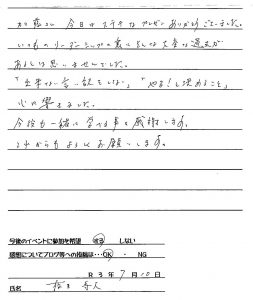 今日はステキなプレゼンありがとうございました。
いつものリーダーシップの裏に そんな 大変な過去が
あるとは思いませんでした。
「出来ない言い訳をしない」「やる!と決めること」
心に響きました。
今後も一緒に学べる事を感謝します。
これからもよろしくお願いします。
今後のイベントに参加を希望 する しない
感想についてブログ等への投稿は…OK ・ NG
R3年7月10日
氏名